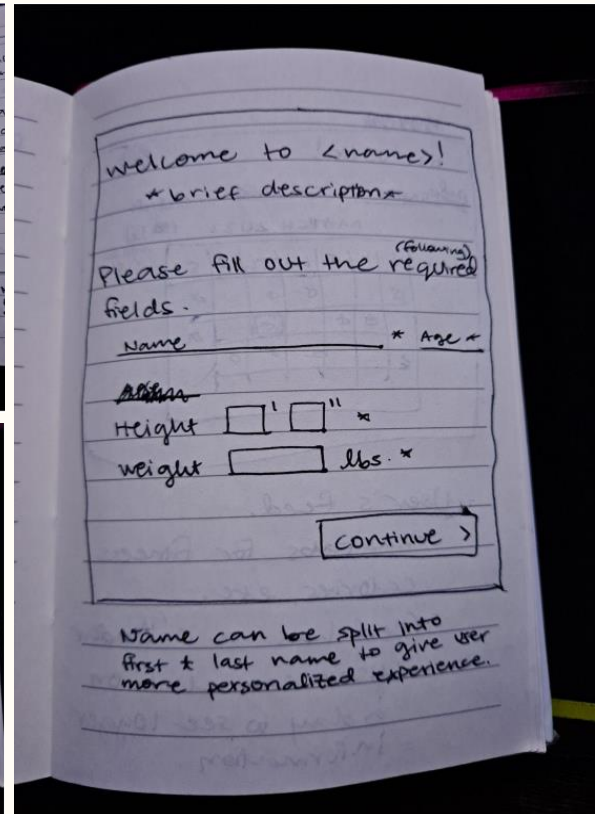 welcome to <name>!
*brief description*
Please fill out the (following) required
fields.
Name * Age *
Height ' " *
weight lbs. *
continue >
Name can be split into
first & last name to give user
more personalized experience.